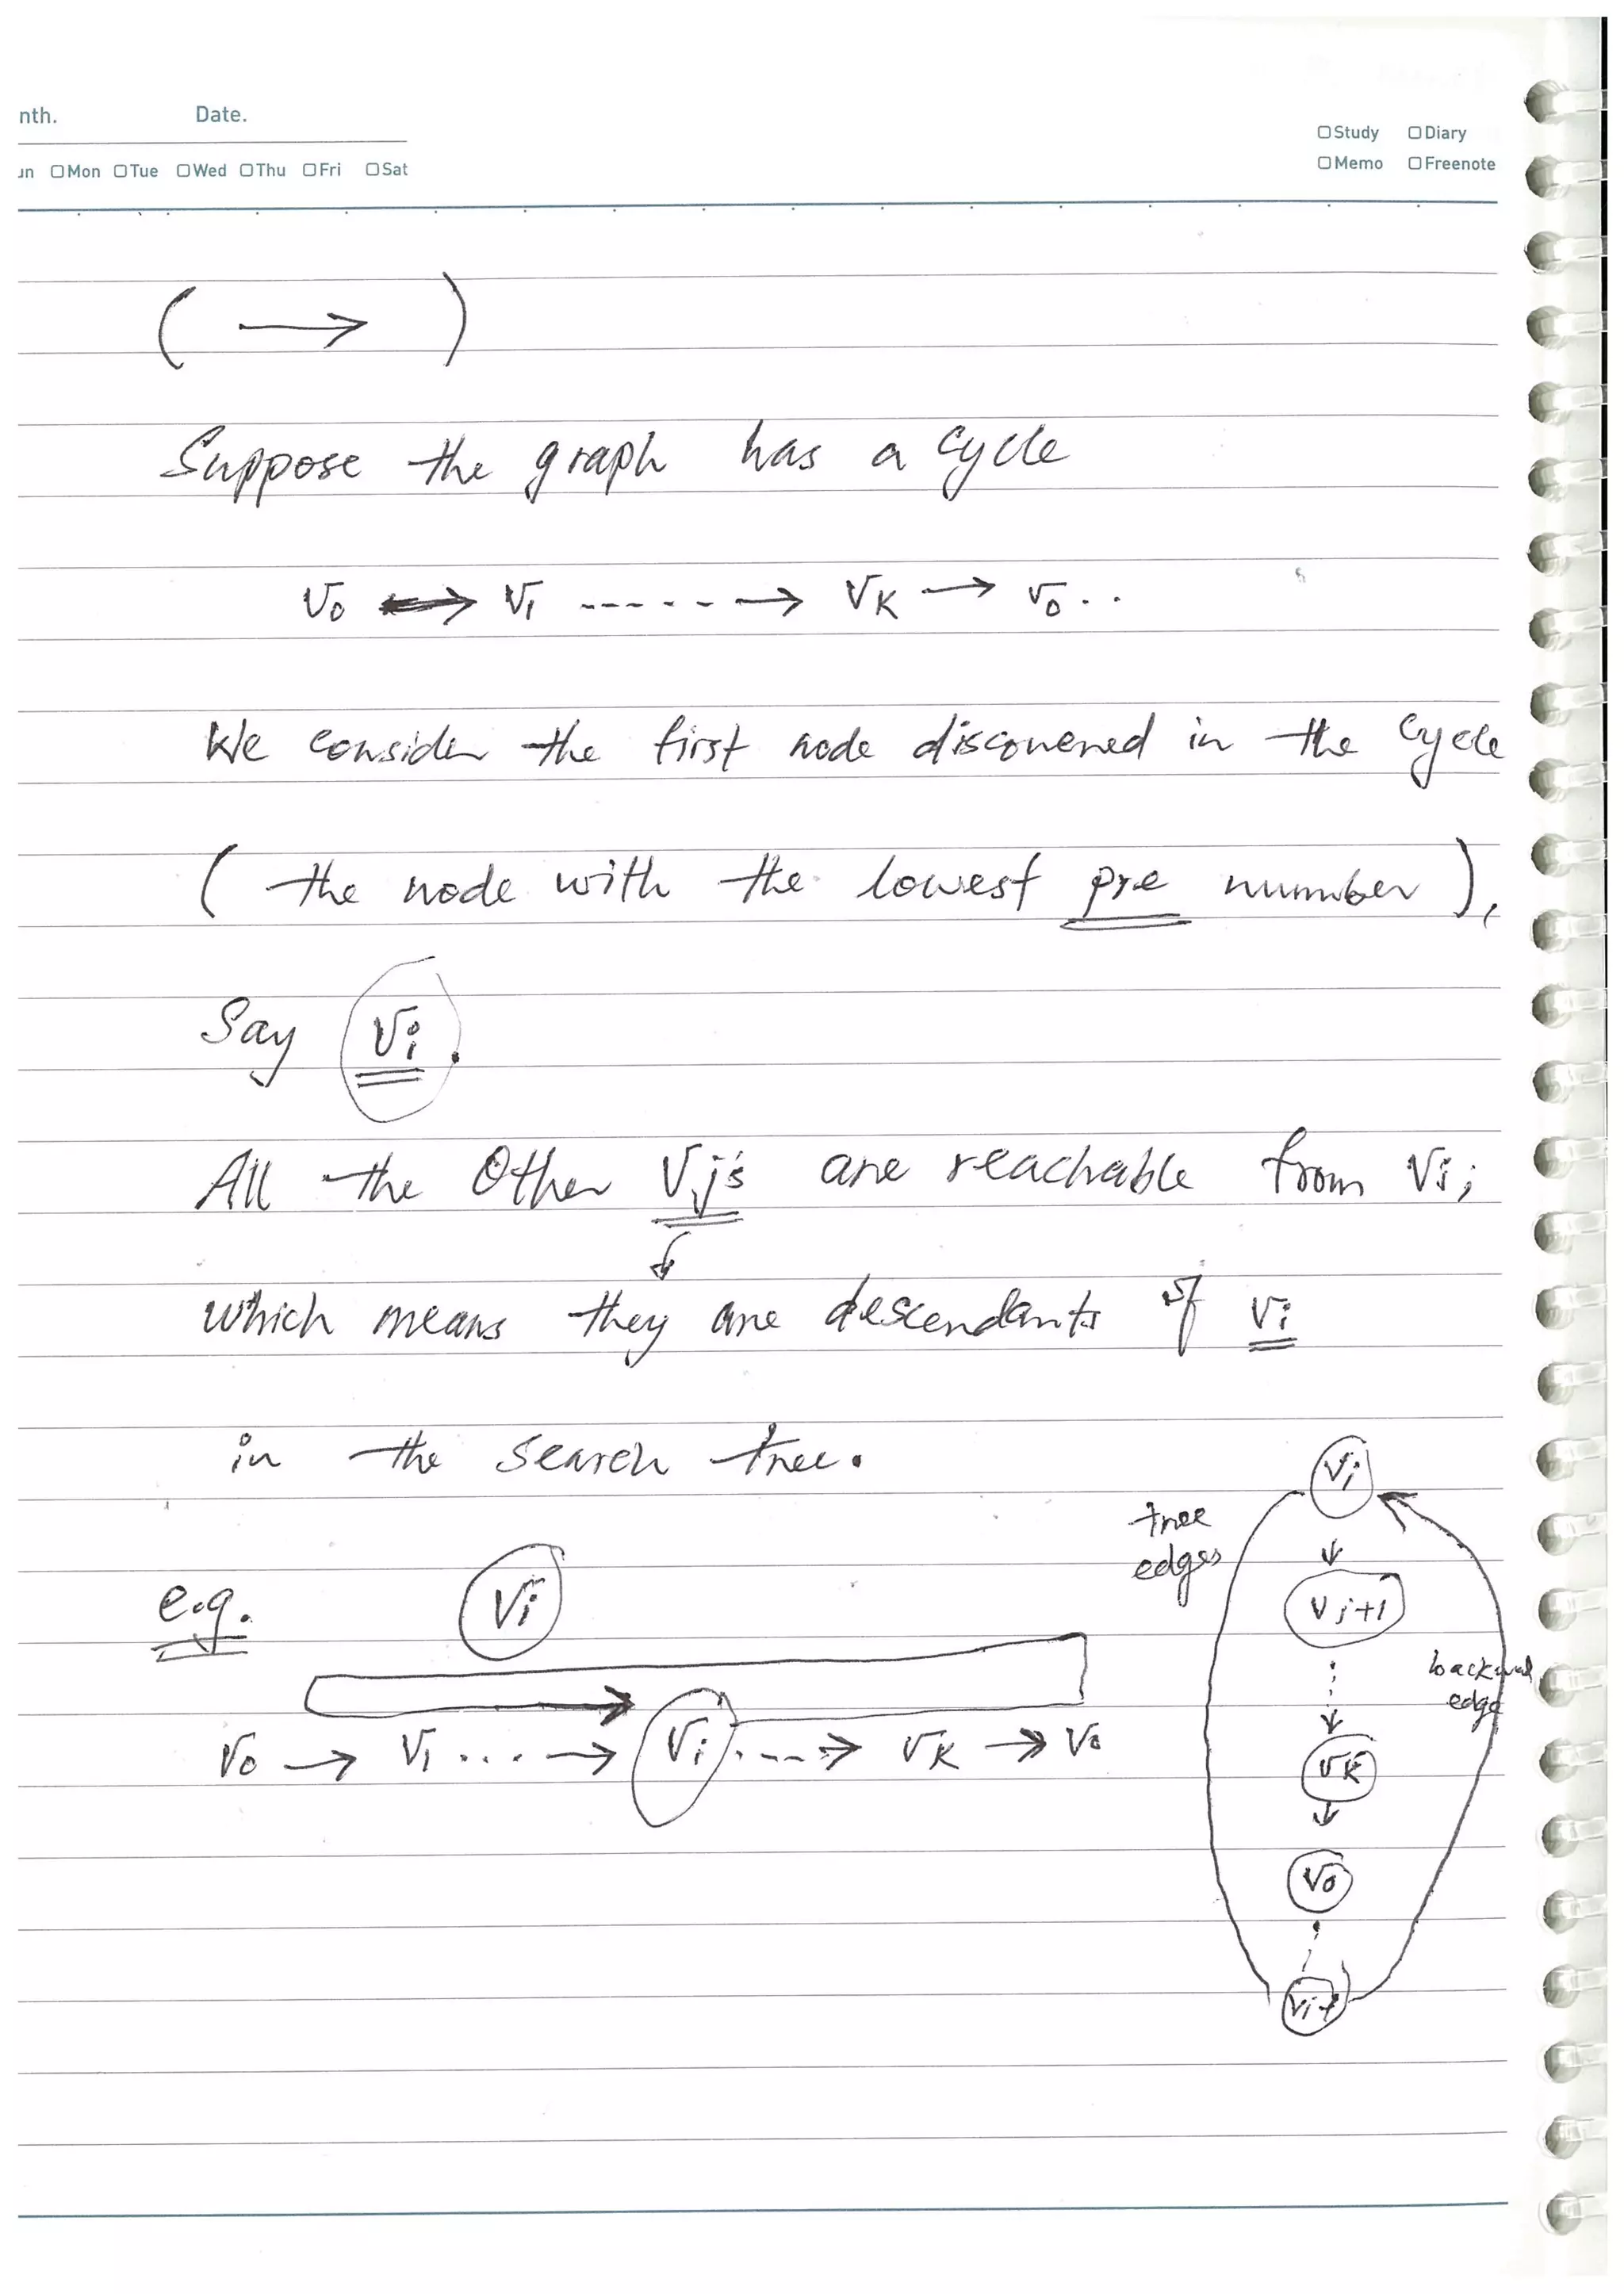 nth. Date.
un □Mon □Tue □Wed □Thu □Fri □Sat
□Study □Diary
□Memo □Freenote
( → )
Suppose the graph has a cycle
V0 ↔ V1 ------→ VK → V0..
We consider the first node discovered in the cycle
( the node with the lowest pre number ),
Say Vi.
All the Other Vj's are reachable from Vi;
which means they are descendants of Vi
in the search tree.
e.g. Vi
V0 → V1 ...→ Vi ...→ VK → V0
tree
edges
Vi
Vi+1
VK
V0
backward
edge